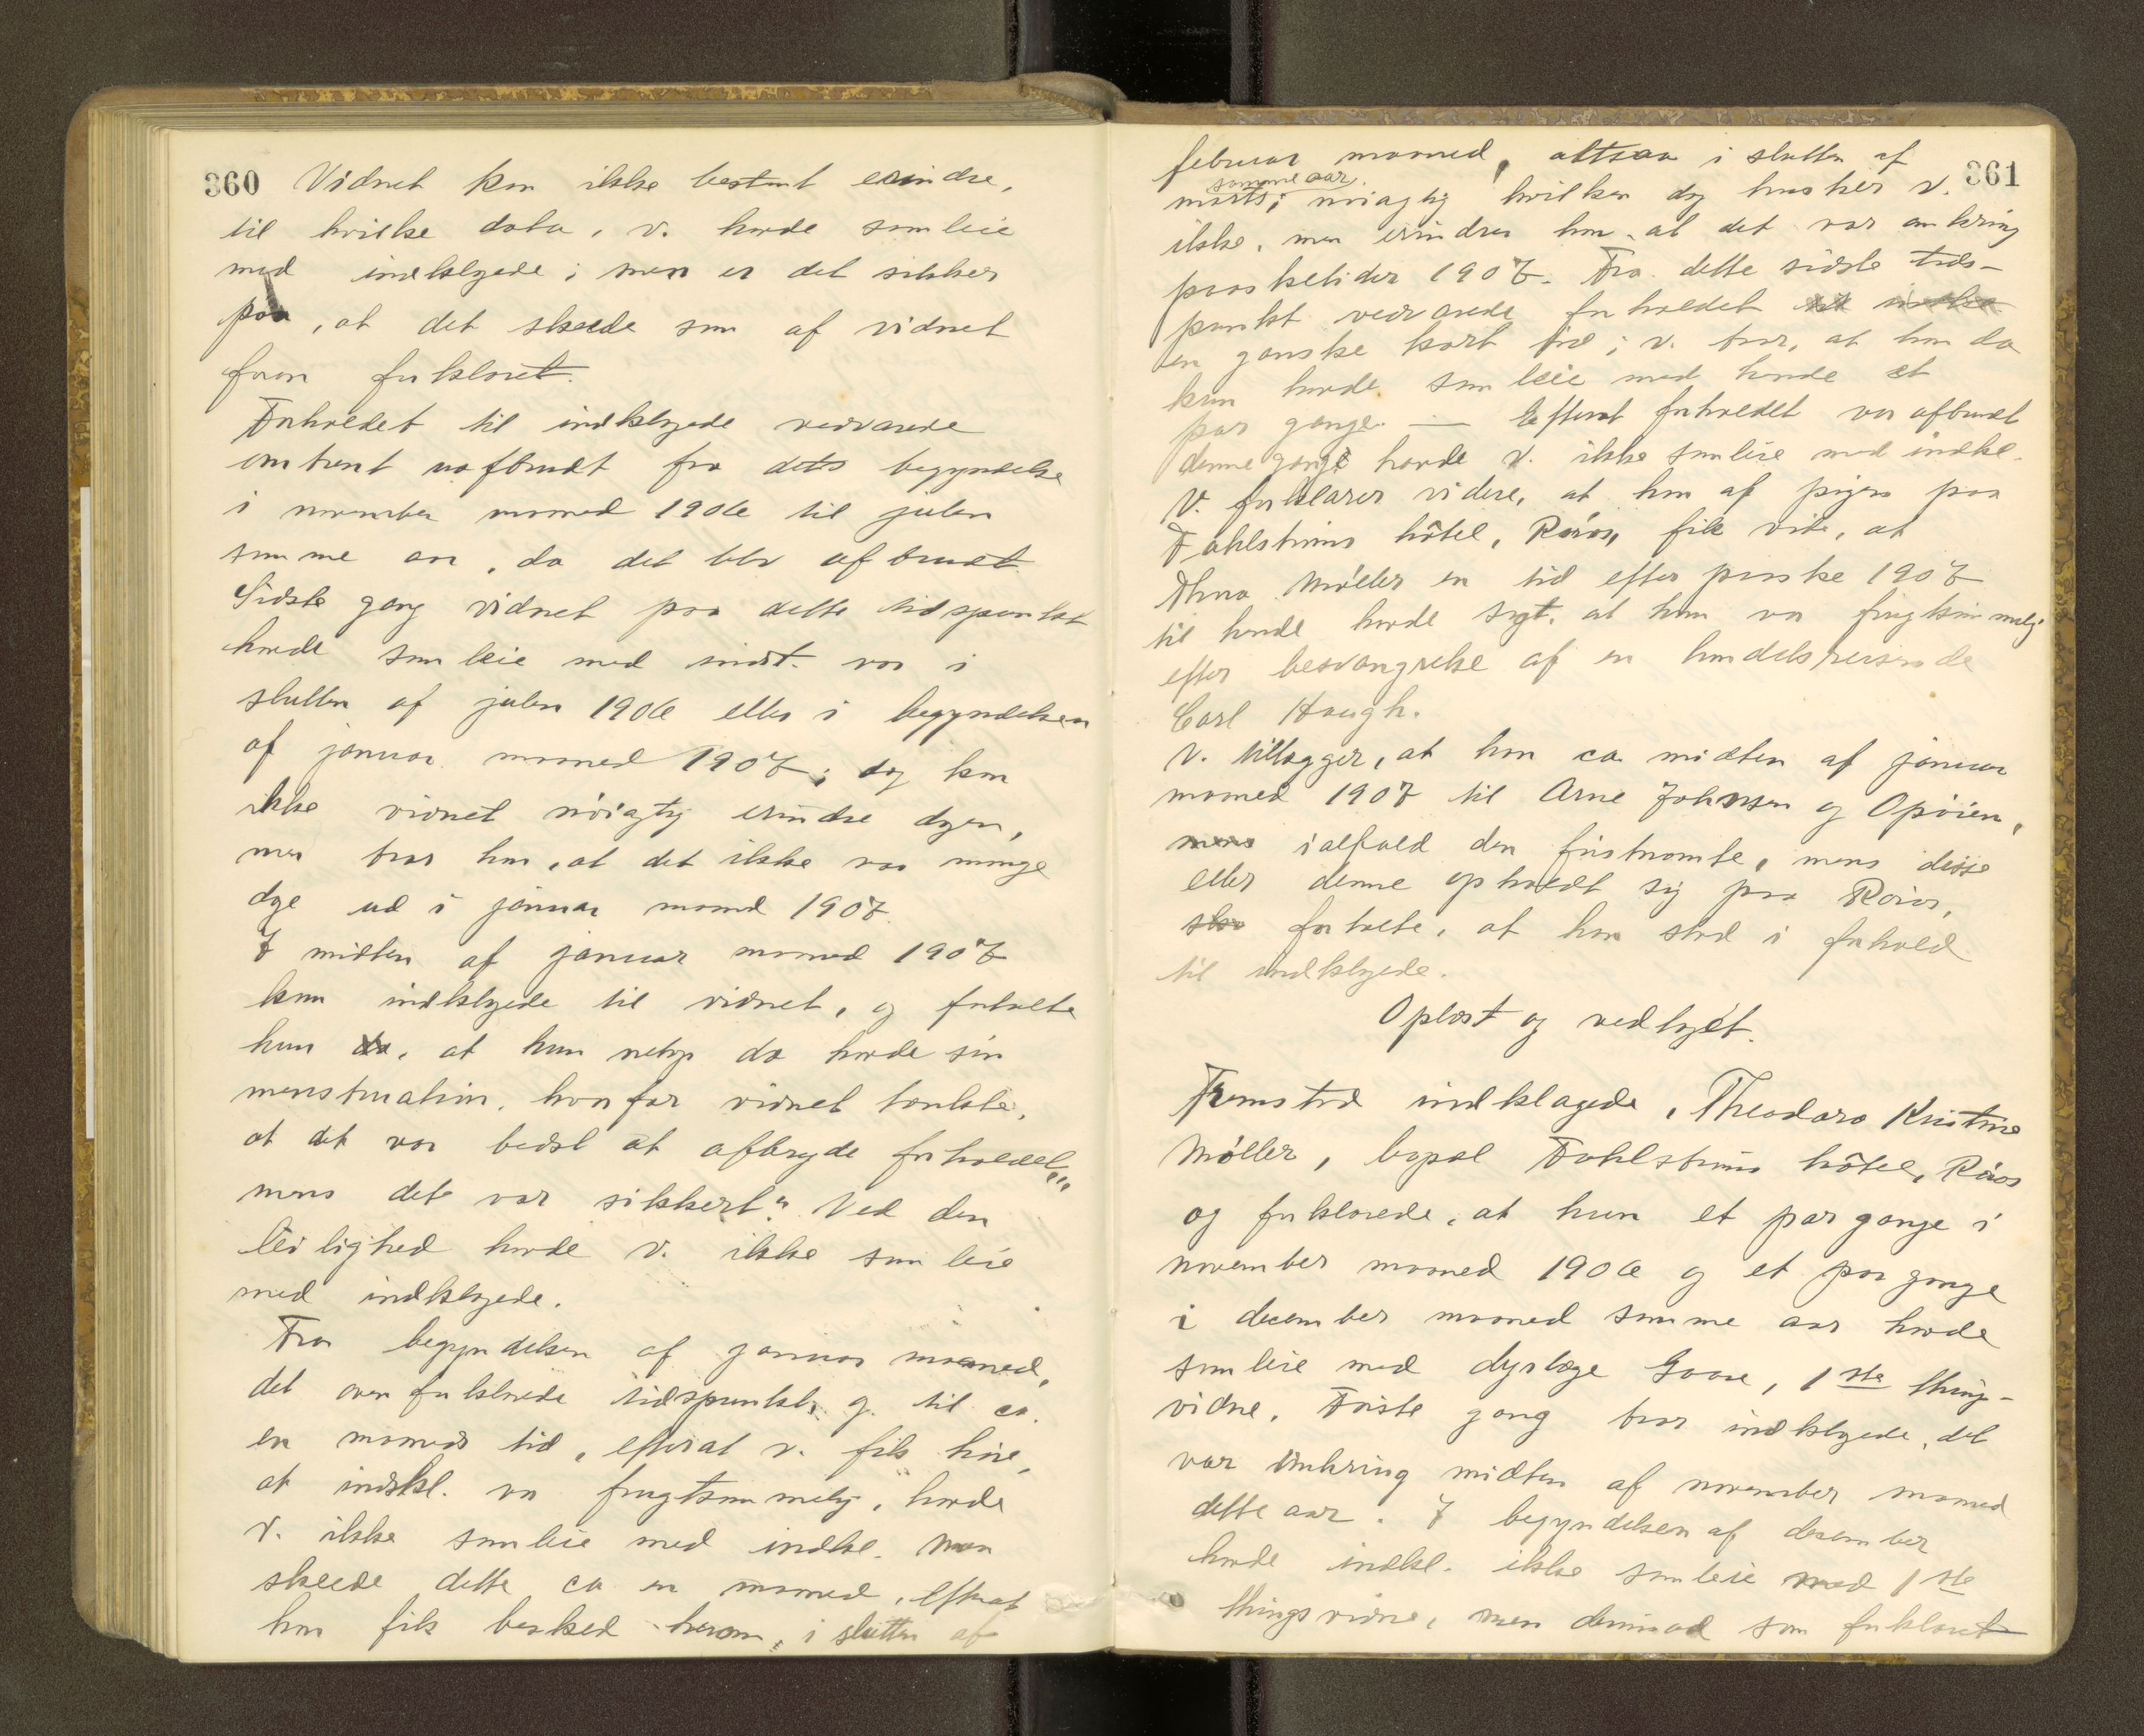 360
Vidnet kan ikke bestemt erindre,
til hvilke data, v. havde samleie
med indklagede; men er det sikker
paa, at det skeede som af vidnet
foran forklaret.
Forholdet til indklagede vedvarede
omtrent uafbrudt fra dets begyndelse
i november maaned 1906 til julen
samme aar, da det blev afbrudt.
Sidste gang vidnet paa dette tidspunkt
havde samleie med indst. var i
slutten af julen 1906 eller i begyndelsen
af januar maaned 1907; dog kan
ikke vidnet nöiagtig erindre dagen,
men tror han, at det ikke var mange
dage ud i januar maaned 1907.
I midten af januar maaned 1907
kom indklagede til vidnet, og fortalte
hun da, at hun netop da havde sin
menstruation, hvorfor vidnet tænkte,
at det var bedst at afbryde forholdet,
"mens det var sikkert". Ved den
leilighed havde v. ikke samleie
med indklagede.
Fra begyndelsen af januar maaned,
det ovenforklarede tidspunkt, og til ca.
en maaneds tid, efterat v. fik höre,
at indkl. var frugtsommelig, havde
v. ikke samleie med indkl. Men
skeede dette ca en maaned, efterat
han fik besked herom, i slutten af
361
februar maaned, altsaa i slutten af
marts samme aar; nöiagtig hvilken dag husker v.
ikke, men erindrer han, at det var omkring
paasketider 1907. Fra dette sidste tids-
punkt vedvarede forholdet
en ganske kort tid; v. tror, at han da
kun havde samleie med hende et
par gange. — Efterat forholdet var afbrudt
denne gang havde v. ikke samleie med indkl.
V. forklarer videre, at han af pigen paa
Fahlströms hôtel, Röros, fik vide, at
Thea Möller en tid efter paaske 1907
til hende havde sagt, at hun var frugtsommelig
efter besvangrelse af en handelsreisende
Carl Haugh.
V. tillægger, at han ca midten af januar
maaned 1907 til Arne Johnsen og Opöien,
mens ialfald den förstnævnte, mens disse
eller denne opholdt sig paa Röros,
fortalte, at han stod i forhold
til indklagede.
Oplæst og vedtaget.
Fremstod indklagede, Theodora Kristine
Möller, bopæl Fahlströms hôtel, Röros
og forklarede, at hun et par gange i
november maaned 1906 og et par gange
i december maaned samme aar havde
samleie med dyrlæge Gaare, 1ste thing-
vidne. Förste gang tror indklagede, det
var omkring midten af november maaned
dette aar. I begyndelsen af december
havde indkl. ikke samleie med 1ste
thingsvidne, men derimod som forklaret